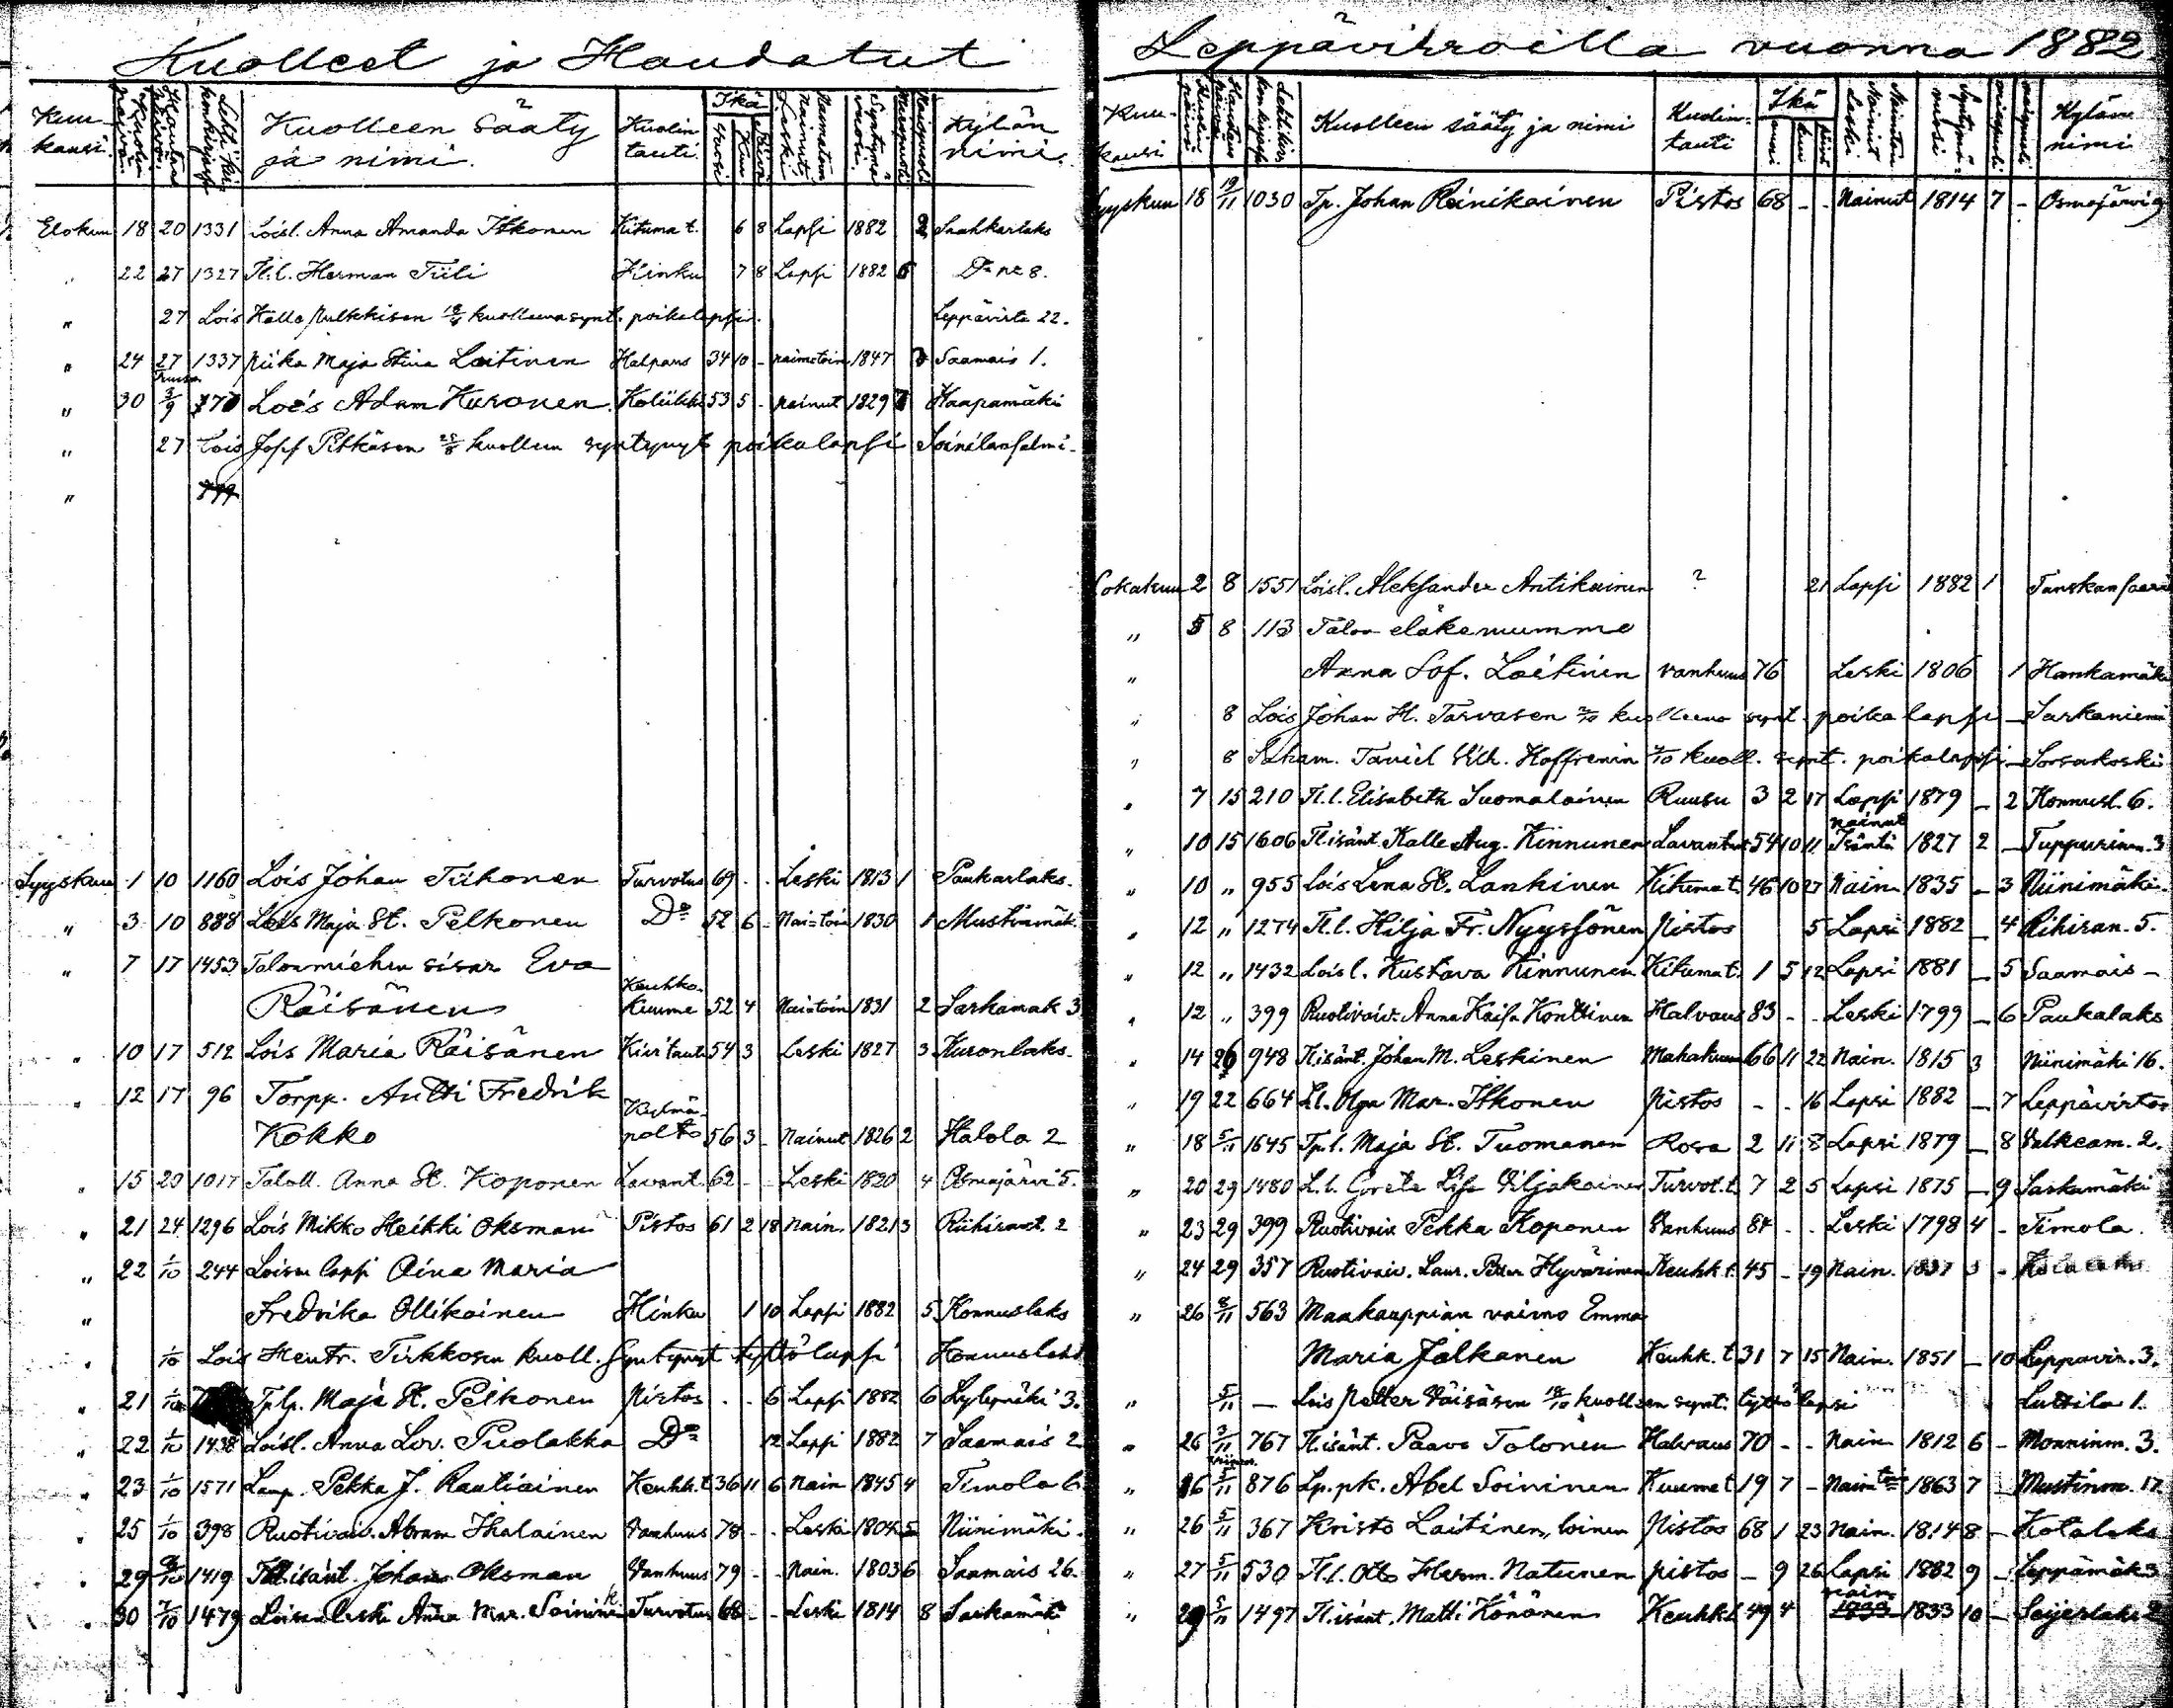 Kuolleet ja Haudatut
Kuukausi. Kuolleen Sääty ja nimi. Kuolintauti. Ikä Vuosi Kuu Päivä Kylän nimi.
Elokuu 18 20 1331 Loisl. Anna Amanda Itkonen Kituma t. 6 8 Lapsi 1882 2 Saahkarlaks
" 22 27 1327 Tl.l. Herman Tiili Hinku 7 8 Lapsi 1882 6 Do no 8.
" 27 Lois Kalle Pulkkisen kuolleena synt. poikalapsi. Leppävirta 22.
" 24 27 1337 Piika Maja Stina Laitinen Halvaus 34 10 - naimatoin 1847 Saamais 1.
" 30 3/9 770 Lois Adam Kuronen Koliikki 53 5 - nainut 1829 Haapamäki
" 27 Lois Josef Pitkäsen kuolleen syntynyt poikalapsi Soinilansalmi
"
Syyskuu 1 10 1160 Lois Johan Tiihonen Turvotus 69 - - Leski 1813 1 Paukarlaks.
" 3 10 888 Lois Maja St. Pelkonen Do 52 6 - Naimatoin 1830 1 Mustinmäk.
" 7 17 1453 Talonmiehen sisar Eva
Räisänen Keuhkokuume 52 4 Naimatoin 1831 2 Sarkamäk 3
" 10 17 512 Lois Maria Räisänen Kivitauti 54 3 Leski 1827 3 Kuronlaks.
" 12 17 96 Torpp. Antti Fredrik
Kokko Kylmäpolto 56 3 - Nainut 1826 2 Halola 2
" 15 20 1017 Taloll. Anna St. Koponen Lavant. 62 - - Leski 1820 4 Osmajärvi 5.
" 21 24 1296 Lois Mikko Heikki Oksman Pistos 61 2 18 Nain. 1821 3 Riihirant. 2
" 22 1/10 244 Loisen lapsi Aina Maria
" Fredrika Ollikainen Hinku 1 10 Lapsi 1882 5 Konnuslaks
" 1/10 Lois Hentr. Tirkkosen kuoll. syntynyt tyttölapsi Konnuslaks
" 21 1/10 Tplp. Maja St. Pelkonen Pistos - - 6 Lapsi 1882 6 Sylymäki 3.
" 22 1/10 1438 Loisl. Anna Lov. Puolakka Do 12 Lapsi 1882 7 Saamais 2
" 23 1/10 1571 Lamp. Pekka J. Rautiainen Keuhk.t 36 11 6 Nain 1845 4 Timola 6
" 25 1/10 398 Ruotivaiv. Abram Ihalainen Vanhuus 78 - - Leski 1804 5 Niinimäki.
" 29 1419 Tl.isänt. Johan Oksman Vanhuus 79 - - Nain. 1803 6 Saamais 26.
" 30 1479 Loisen leski Anna Mar. Soininen Turvotus 68 - - Leski 1814 8 Sarkamäki
Leppävirroilla vuonna 1882
Kuukausi Kuolleen sääty ja nimi Kuolintauti Ikä vuosi kuu päivä Kylän nimi
Syyskuu 18 19/11 1030 Tp. Johan Reinikainen Pistos 68 - - Nainut 1814 7 - Osmajärvi 9
Lokakuu 2 8 1551 Loisl. Aleksander Antikainen ? 21 Lapsi 1882 1 Tanskansaari
" 5 8 113 Talon eläkemummo
" Anna Sof. Laitinen vanhuus 76 Leski 1806 1 Hankamäki
" 8 Lois Johan H. Tarvasen kuolleena synt. poikalapsi - Sarkaniemi
" 8 Taniel Vilh. Hoffrenin kuoll. synt. poikalapsi - Sorsakoski
" 7 15 210 Tl.l. Elisabeth Suomalainen Ruusu 3 2 17 Lapsi 1879 - 2 Konnusl. 6.
" 10 15 1606 Tl.isänt. Kalle Aug. Kinnunen Lavantaut 54 10 11 nainut Isäntä 1827 2 - Tuppurinm. 3
" 10 " 955 Lois Lena St. Lankinen Kitumat. 46 10 27 Nain 1835 - 3 Niinimäki.
" 12 " 1274 Tl.l. Hilja Fr. Nyyssönen Pistos 5 Lapsi 1882 - 4 Riihiran. 5.
" 12 " 1432 Loisl. Kustava Kinnunen Kitumat. 1 5 12 Lapsi 1881 - 5 Saamais -
" 12 " 399 Ruotivaiv. Anna Kaisa Konttinen Halvaus 83 - - Leski 1799 - 6 Paukalaks
" 14 26 948 Tl.isänt. Johan M. Leskinen 66 11 22 Nain. 1815 3 Niinimäki 16.
" 19 22 664 Ll. Olga Mar. Itkonen Pistos - - 16 Lapsi 1882 - 7 Leppävirta
" 18 5/11 1645 Tpl. Maja St. Tuomanen Rosa 2 11 8 Lapsi 1879 - 8 Valkeam. 2.
" 20 29 1480 L.l. Greta Lisa Viljakainen Turvot.t. 7 2 5 Lapsi 1875 - 9 Sarkamäki
" 23 29 399 Ruotivaiv. Pekka Koponen Vanhuus 84 - - Leski 1798 4 - Timola.
" 24 29 357 Ruotivaiv. Laur. Petter Hyvärinen Keuhk.t. 45 - 19 Nain. 1837 5 -
" 26 5/11 563 Maakauppian vaimo Emma
Maria Jalkanen Keuhk.t 31 7 15 Nain. 1851 - 10 Leppävir. 3.
" 5/11 - Lois Petter Väisäsen kuolleen synt. tyttölapsi Luttila 1.
" 26 5/11 767 Tl.isänt. Paavo Tolonen Halvaus 70 - - Nain 1812 6 - Monninm. 3.
" 26 5/11 876 Lp.pk. Abel Soininen Kuumet 19 7 - Naimatoin 1863 7 - Mustinm. 17
" 26 5/11 367 Kristo Laitinen, loinen Pistos 68 1 23 Nain. 1814 8 - Kotalaks
" 27 5/11 530 Tl.l. Otto Herm. Natunen pistos - 9 26 Lapsi 1882 9 - Leppämäk 3
" 29 5/11 1497 Tl.isänt. Matti Könönen Keuhk.t 49 4 nain 1833 10 - Seijerlaks 2